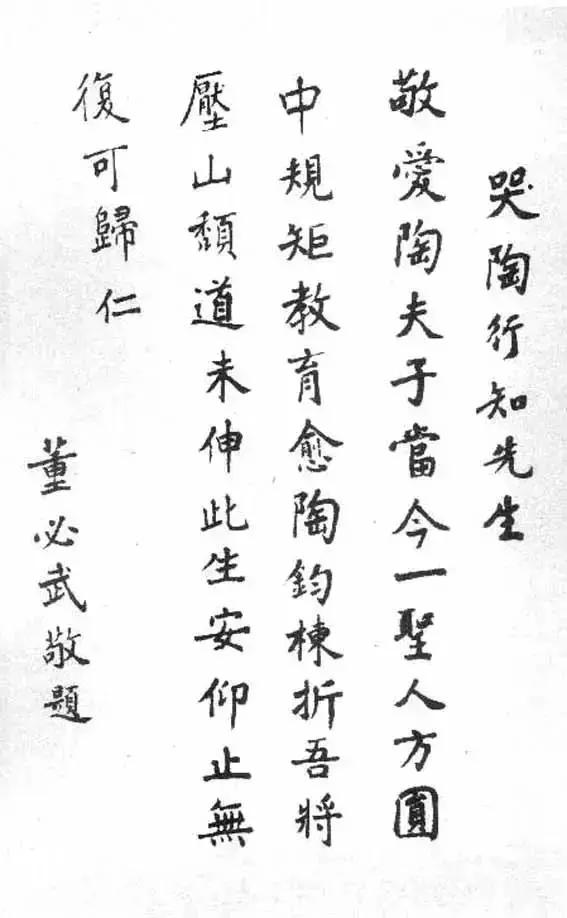 哭陶行知先生
敬愛陶夫子當今一聖人方圓
中規矩教育愈陶鈞棟折吾將
壓山頹道未伸此生安仰止無
復可歸仁
董必武敬題